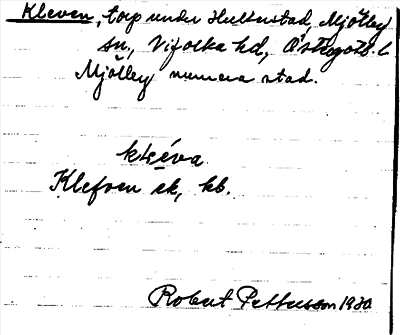 Kleven, torp under Hulterstad, Mjölby
sn, Vifolka hd, Östergötl. l.
Mjölby numera stad.
kléva
Klefven ek, kb.
Robert Pettersson 1930.